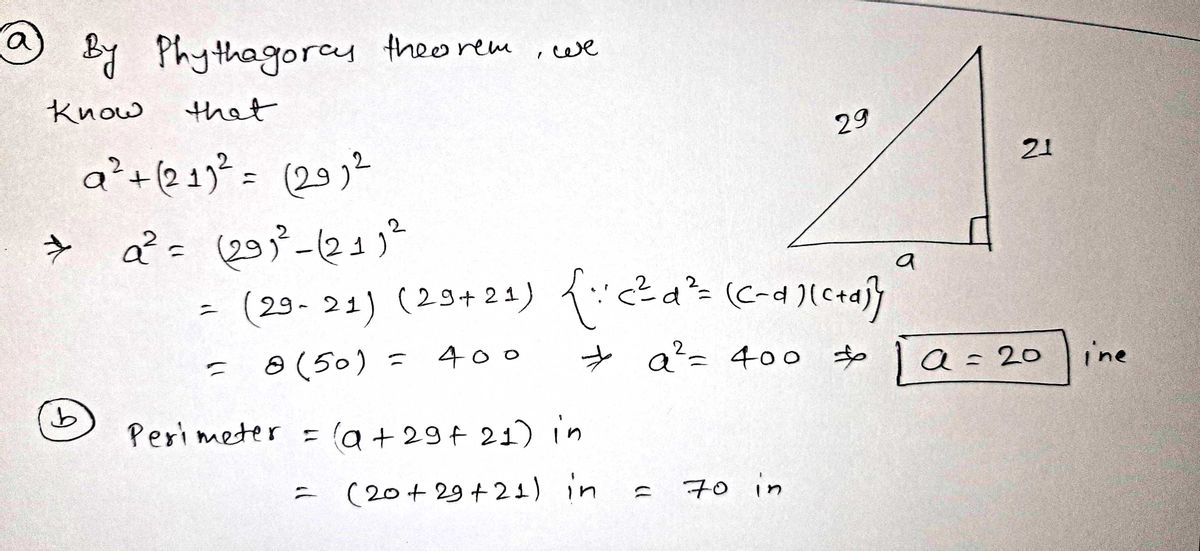 a By Phythagoras theorem, we
know that
a²+(21)² = (29)²
⇒ a² = (29)²-(21)²
= (29-21) (29+21) {∵ c²-d²= (c-d)(c+d)}
= 8(50) = 400 ⇒ a²= 400 ⇒ a = 20 ine
b Perimeter = (a+29+21) in
= (20+29+21) in = 70 in
29
21
a